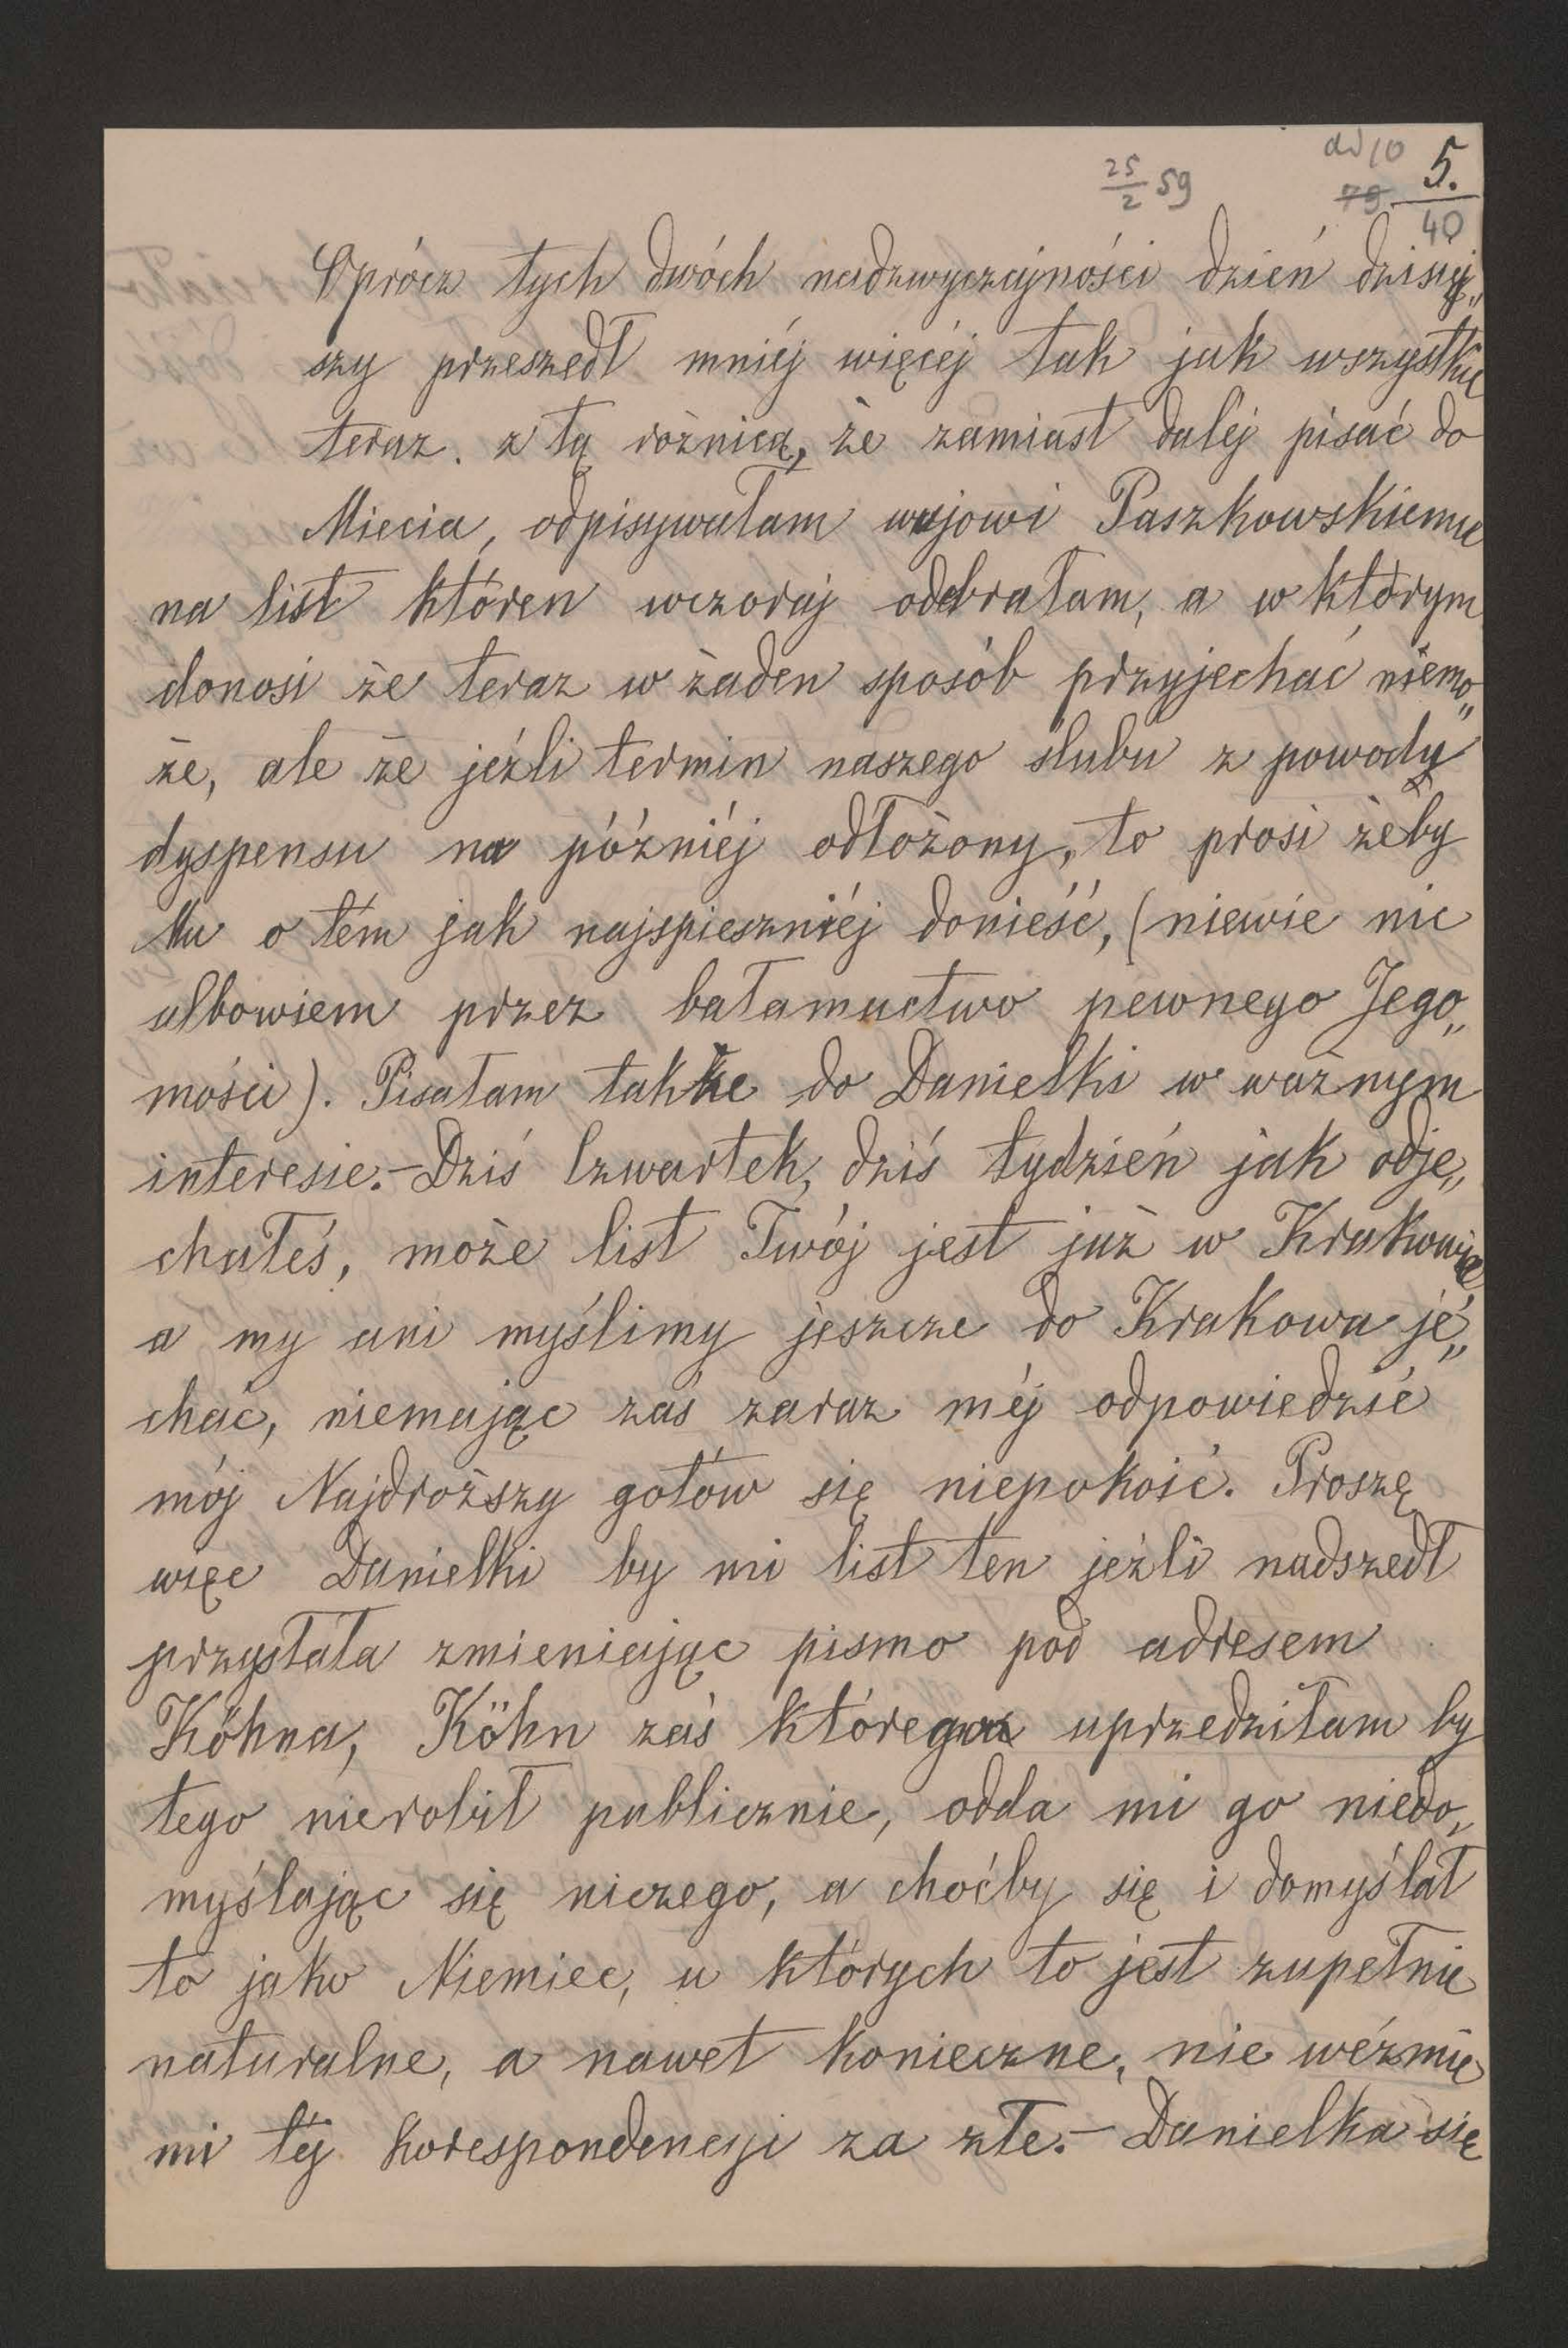 ad 10
5.
25/2 59
79
40
Oprócz tych dwóch nadzwyczajności dzień dzisiej„
szy przeszedł mniéj więcéj tak jak wszystkie
teraz. z tą rożnicą, że zamiast daléj pisać do
Miecia, odpisywałam wujowi Paszkowskiemu
na list któren wczoraj odebrałam, a w którym
donosi że teraz w żaden sposób przyjechać niemo„
że, ale że jeźli termin naszego ślubu z powodu
dyspensu na późniéj odłożony, to prosi żeby
Mu o tém jak najspieszniéj donieść, (niewie nic
albowiem przez bałamuctwo pewnego Jego„
mości). Pisałam także do Danielki w ważnym
interesie.– Dziś Czwartek, dziś tydzień jak odje„
chałeś, może list Twój jest już w Krakowie
a my ani myślimy jeszcze do Krakowa je„
chać, niemając zaś zaraz méj odpowiedzi
mój Najdroższy gotów się niepokoić. Proszę
więc Danielki by mi list ten jeźli nadszedł
przysłała zmieniając pismo pod adresem
Köhna, Köhn zaś którego uprzedziłam by
tego nierobił publicznie, odda mi go niedo„
myślając się niczego, a choćby się i domyślał
to jako Niemiec, u których to jest zupełnie
naturalne, a nawet konieczne, nie weźmie
mi téj korespondencyi za złe.– Danielka się